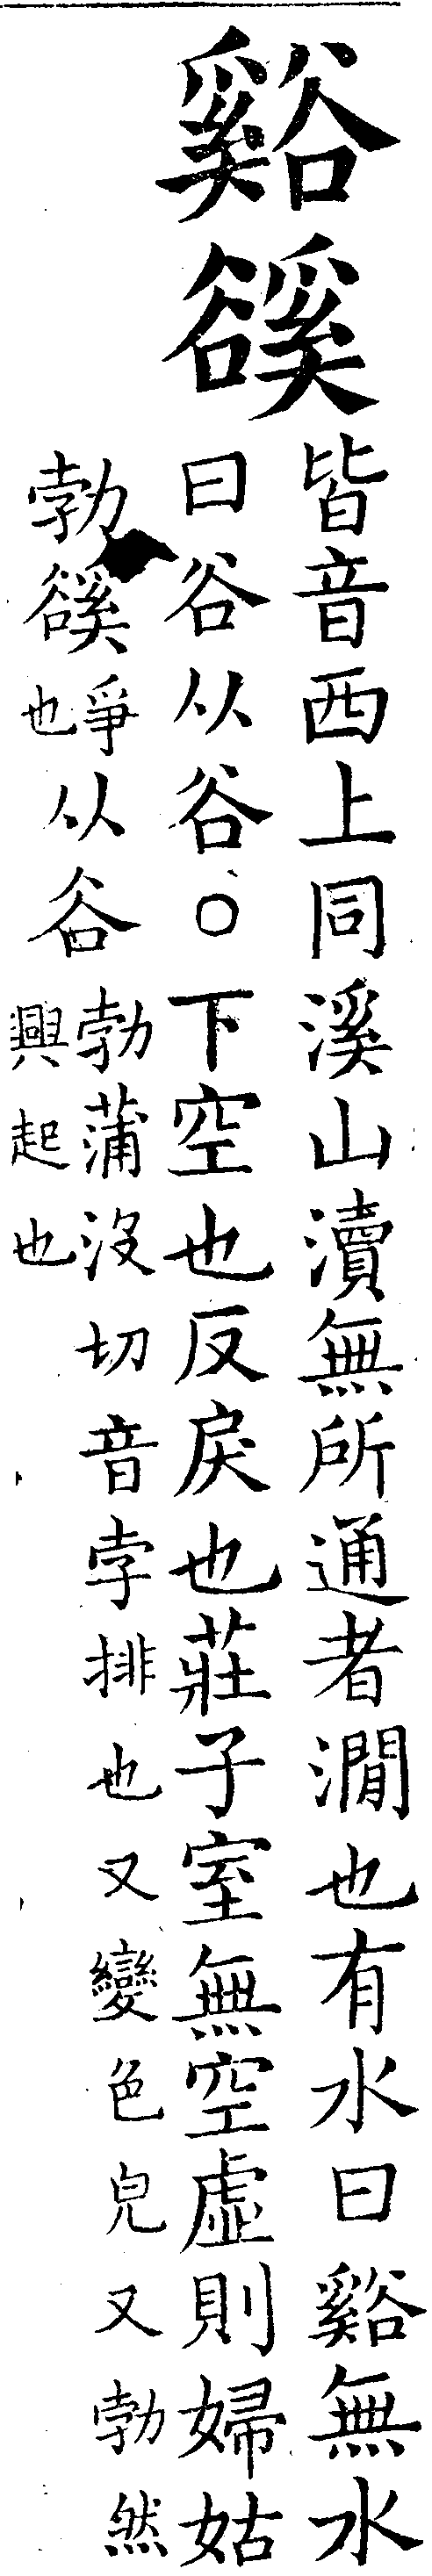 谿豀
皆音西上同溪山瀆無所通者澗也有水曰谿無水
曰谷从谷○下空也反戾也莊子室無空虛則婦姑
勃豀爭也从谷勃蒲沒切音孛排也又變色皃又勃然
興起也